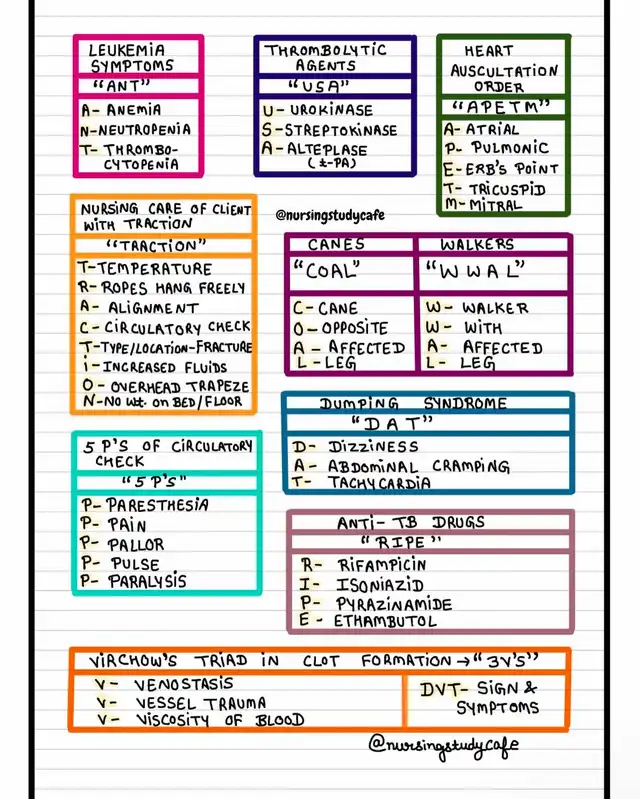 LEUKEMIA
SYMPTOMS
"ANT"
A- ANEMIA
N-NEUTROPENIA
T- THROMBO-
CYTOPENIA
THROMBOLYTIC
AGENTS
"USA"
U- UROKINASE
S-STREPTOKINASE
A- ALTEPLASE
(t-PA)
HEART
AUSCULTATION
ORDER
"APETM"
A- ATRIAL
P- PULMONIC
E-ERB'S POINT
T- TRICUSPID
M-MITRAL
NURSING CARE OF CLIENT
WITH TRACTION
"TRACTION"
T-TEMPERATURE
R- ROPES HANG FREELY
A- ALIGNMENT
C-CIRCULATORY CHECK
T-TYPE/LOCATION-FRACTURE
i- INCREASED FLUIDS
O- OVERHEAD TRAPEZE
N-NO Wt. ON BED/FLOOR
@nursingstudycafe
CANES
"COAL"
C- CANE
O- OPPOSITE
A- AFFECTED
L- LEG
WALKERS
"WWAL"
W- WALKER
W- WITH
A- AFFECTED
L- LEG
DUMPING SYNDROME
"DAT"
D- DIZZINESS
A- ABDOMINAL CRAMPING
T- TACHYCARDIA
5 P'S OF CIRCULATORY
CHECK
"5 P'S"
P- PARESTHESIA
P- PAIN
P- PALLOR
P- PULSE
P- PARALYSIS
ANTI- TB DRUGS
"RIPE"
R- RIFAMPICIN
I- ISONIAZID
P- PYRAZINAMIDE
E- ETHAMBUTOL
VIRCHOW'S TRIAD IN CLOT FORMATION→"3V'S"
V- VENOSTASIS
V- VESSEL TRAUMA
V- VISCOSITY OF BLOOD
DVT- SIGN &
SYMPTOMS
@nursingstudycafe